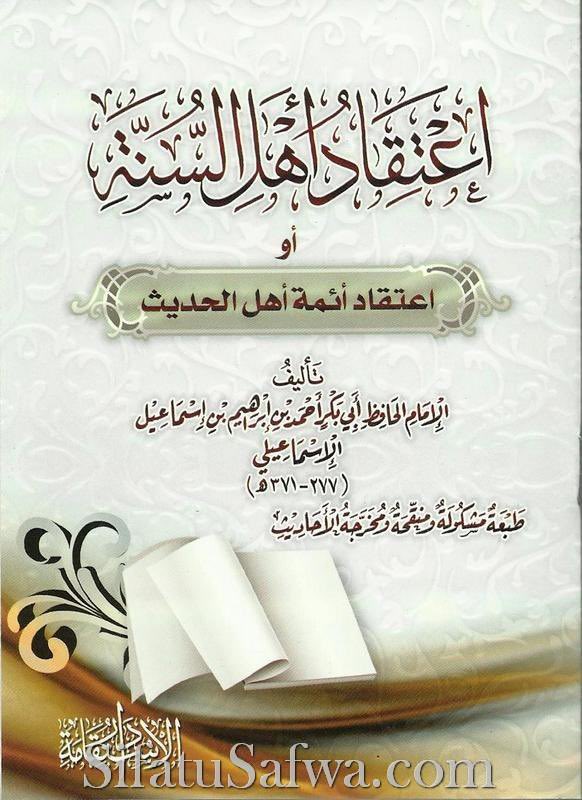 اعْتِقَادُ أَهْلِ السُّنَّةِ
أو
اعتقاد أئمة أهل الحديث
تَأليفُ
الإمَام الحَافِظ أبي بَكر أحمَد بْن إبرَاهِيم بْن إسمَاعيْل
الإسمَاعِيلي
(٢٧٧-٣٧١هـ)
طَبْعَةٌ مَشكُولَةٌ ومنقّحَةٌ ومُخَرَّجَةُ الأحَاديِث
دار الاستقامة
SifatuSafwa.com